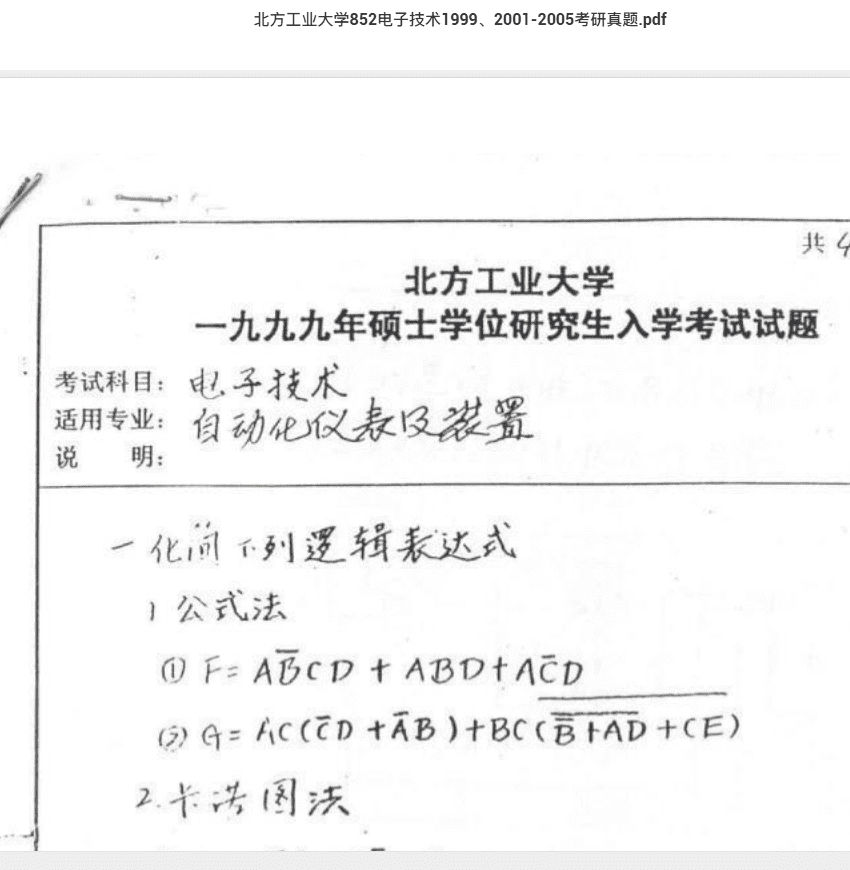 北方工业大学852电子技术1999、2001-2005考研真题.pdf
共4
北方工业大学
一九九九年硕士学位研究生入学考试试题
考试科目：电子技术
适用专业：自动化仪表及装置
说 明：
一 化简下列逻辑表达式
1 公式法
① F= AB̅CD + ABD+AC̅D
② G= AC(C̅D +A̅B)+BC(\overline{\overline{\overline{B}+AD}+CE})
2.卡诺图法